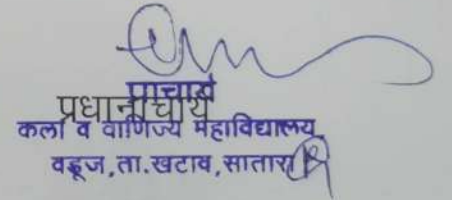 प्राचार्य
प्रधानाचार्य
कला व वाणिज्य महाविद्यालय,
वडूज, ता. खटाव, सातारा